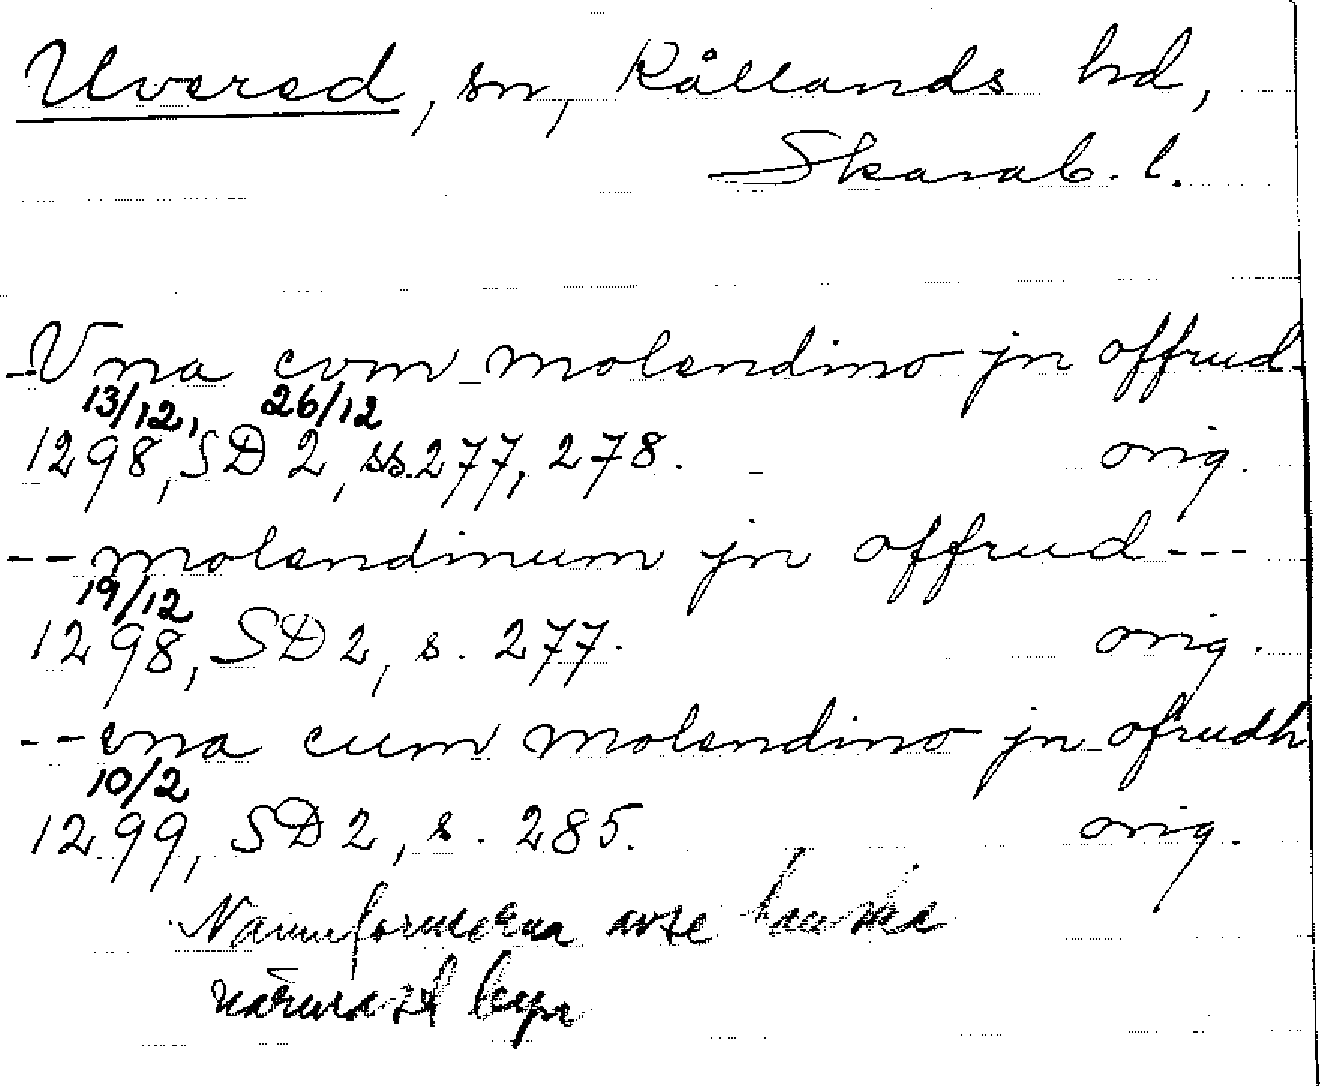 Uvered, sn, Kållands hd,
Skarab. l.
Vna cvm molendino jn offrud-
13/12, 26/12
1298, SD 2, ss. 277, 278. orig.
-- molendinum jn offrud ---
19/12
1298, SD 2, s. 277. orig.
-- vna cum molendino jn ofrudh
10/2
1299, SD 2, s. 285. orig.
Namnformerna avse kanske
närmast byn